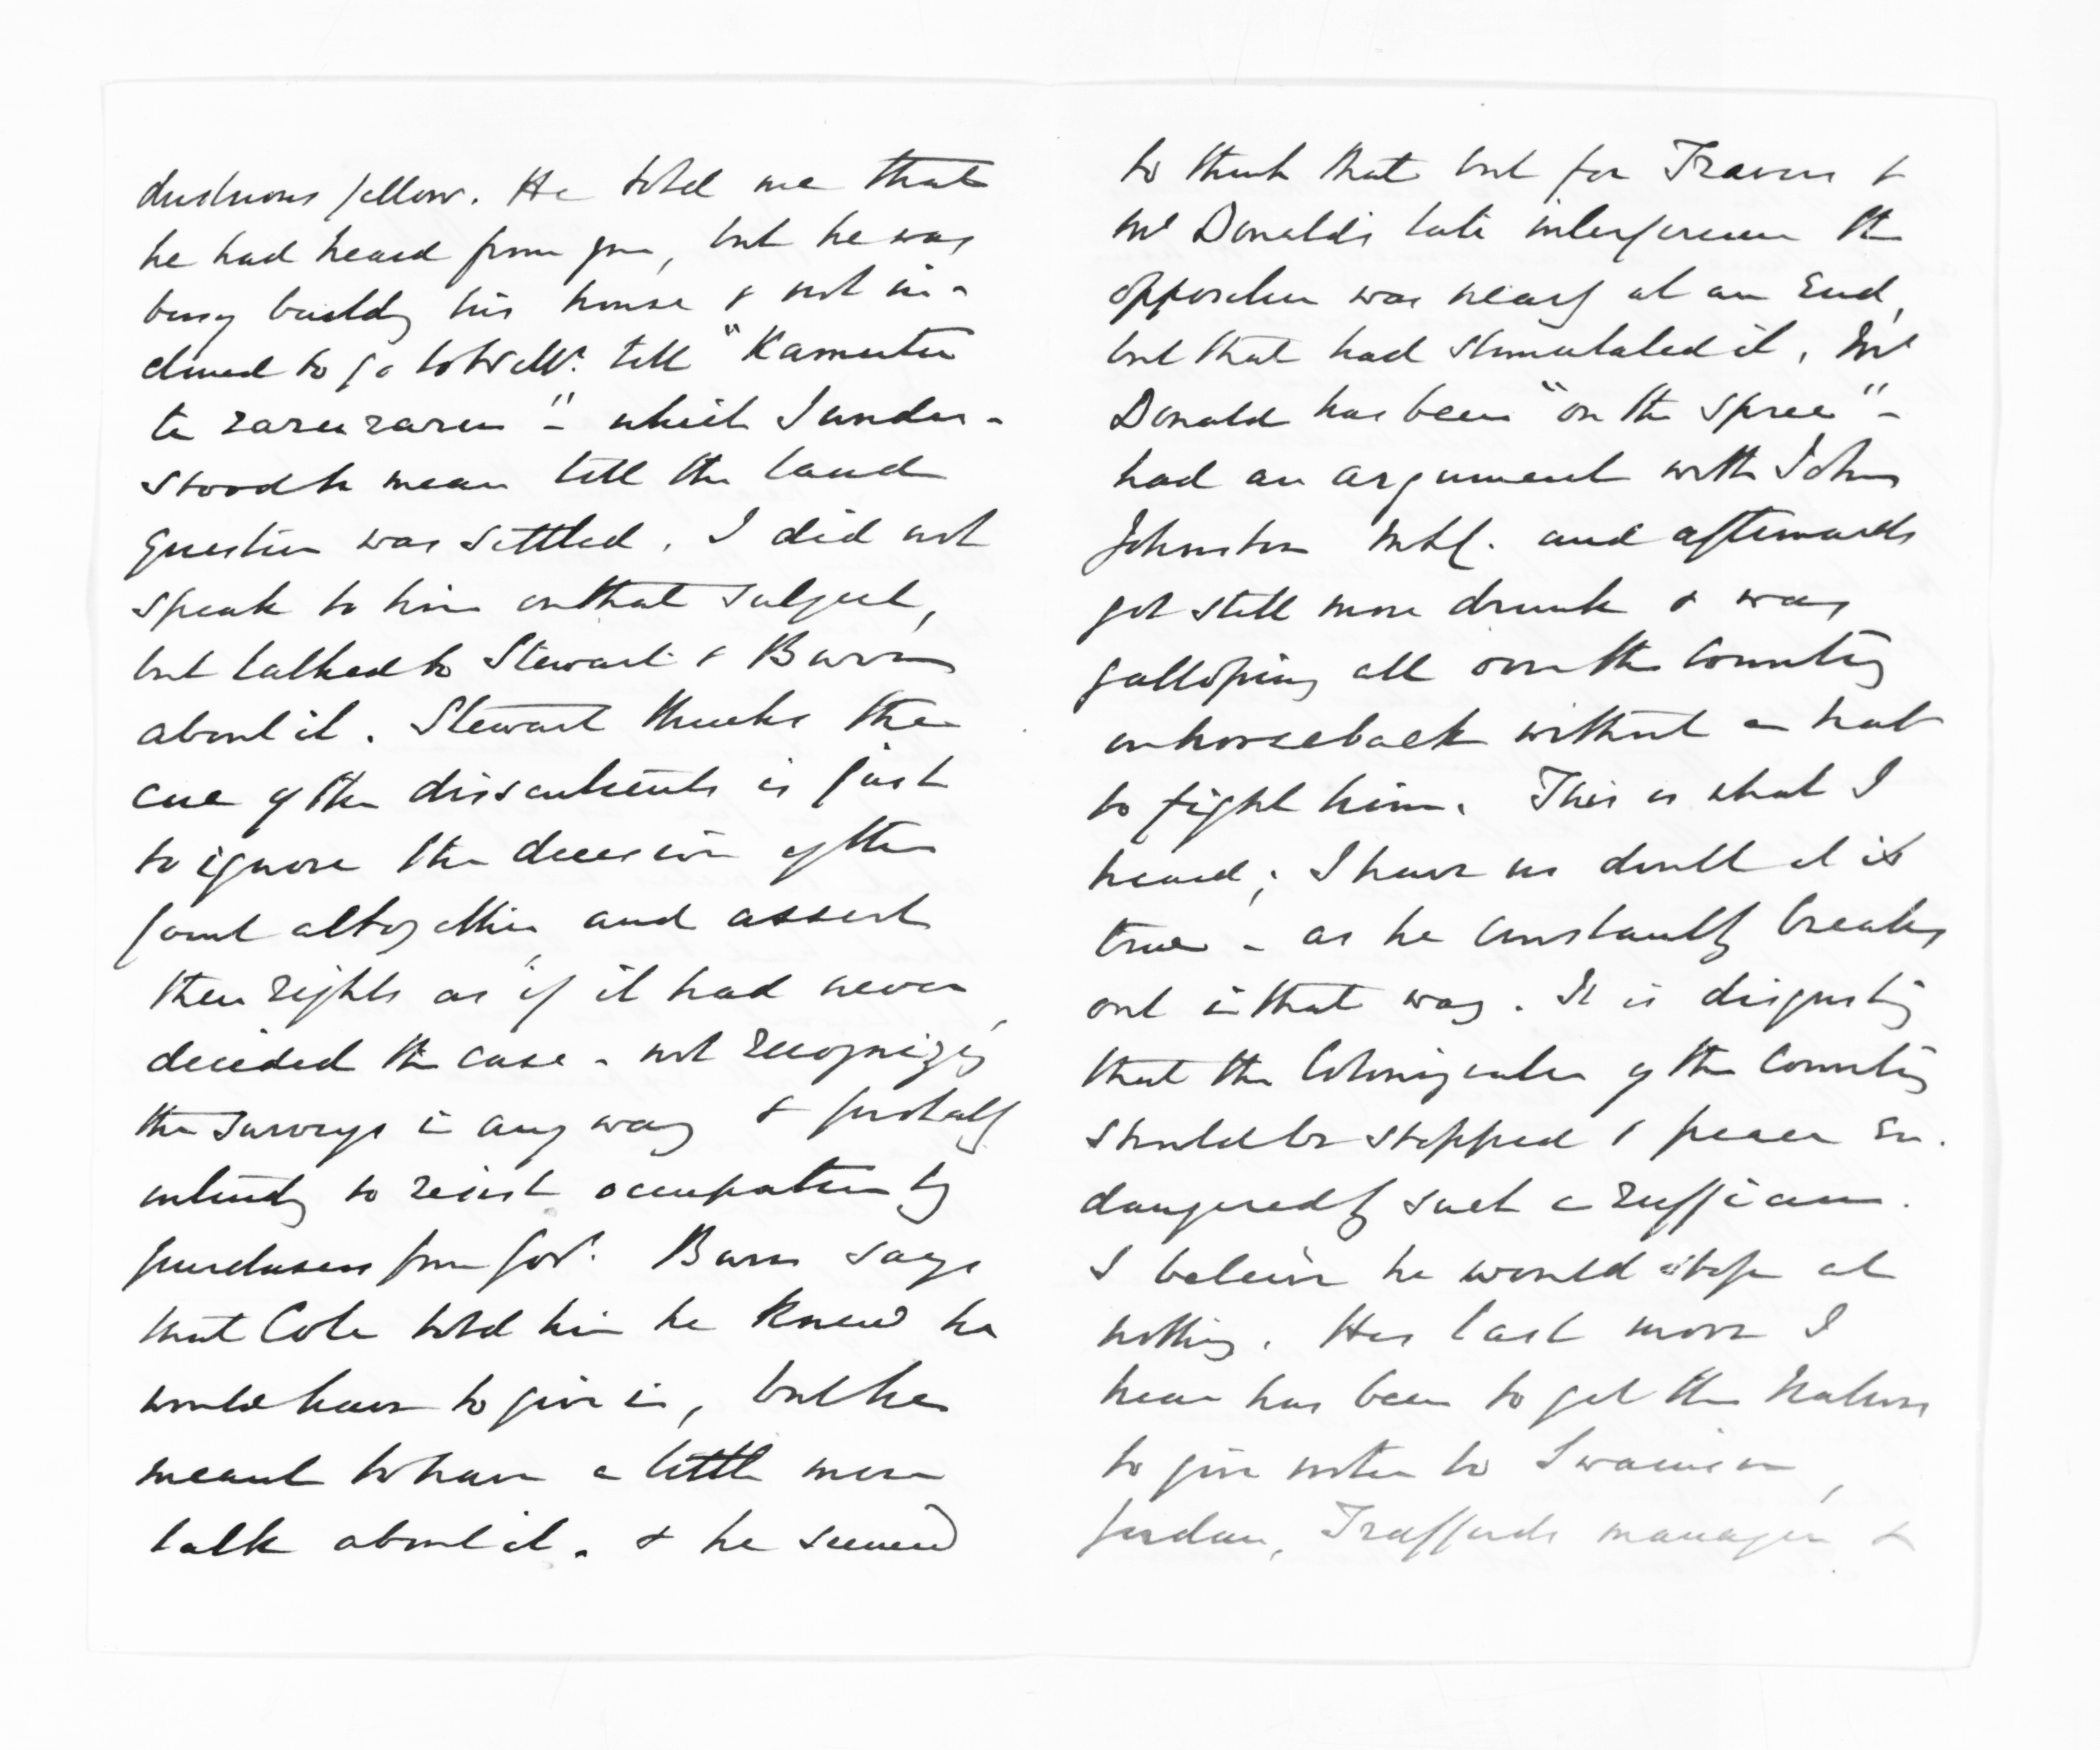 dustrious fellow. He told me that
he had heard from you, but he was
busy buildg his house & not in-
clined to go to Well<sup>n</sup>. till "Kamutu
te raruraru" - which I under-
stood to mean till the land
question was settled. I did not
speak to him on that subject,
but talked to Stewart & Baron
about it. Stewart thinks the
cue of the dissentients is just
to ignore the decision of the
Court altogether, and assert
their rights as if it had never
decided the case - not recognizg
the surveys in any way & probably
intendg to resist occupation by
purchasers from Gov<sup>t</sup>. Baron says
that Cole told him he knew he
would have to give in, but he
meant to have a little more
talk about it. & he seemed
to think that but for Travers &
M<sup>c</sup> Donald's late interference the
opposition was nearly at an End,
but that had stimulated it. M<sup>c</sup>
Donald has been "on the spree" -
had an argument with John
Johnston and afterwards
got still more drunk & was
galloping all over the country
on horseback without a hat
to fight him. This is what I
heard; I have no doubt it is
true - as he constantly breaks
out in that way. It is disgustg
that the Colonization of the Country
should be stopped & peace en-
dangered by such a ruffian.
I beleive he would stop at
nothing. His last move I
hear has been to get the Natives
to give notice to Swainson,
Jordan, Trafford's manager &